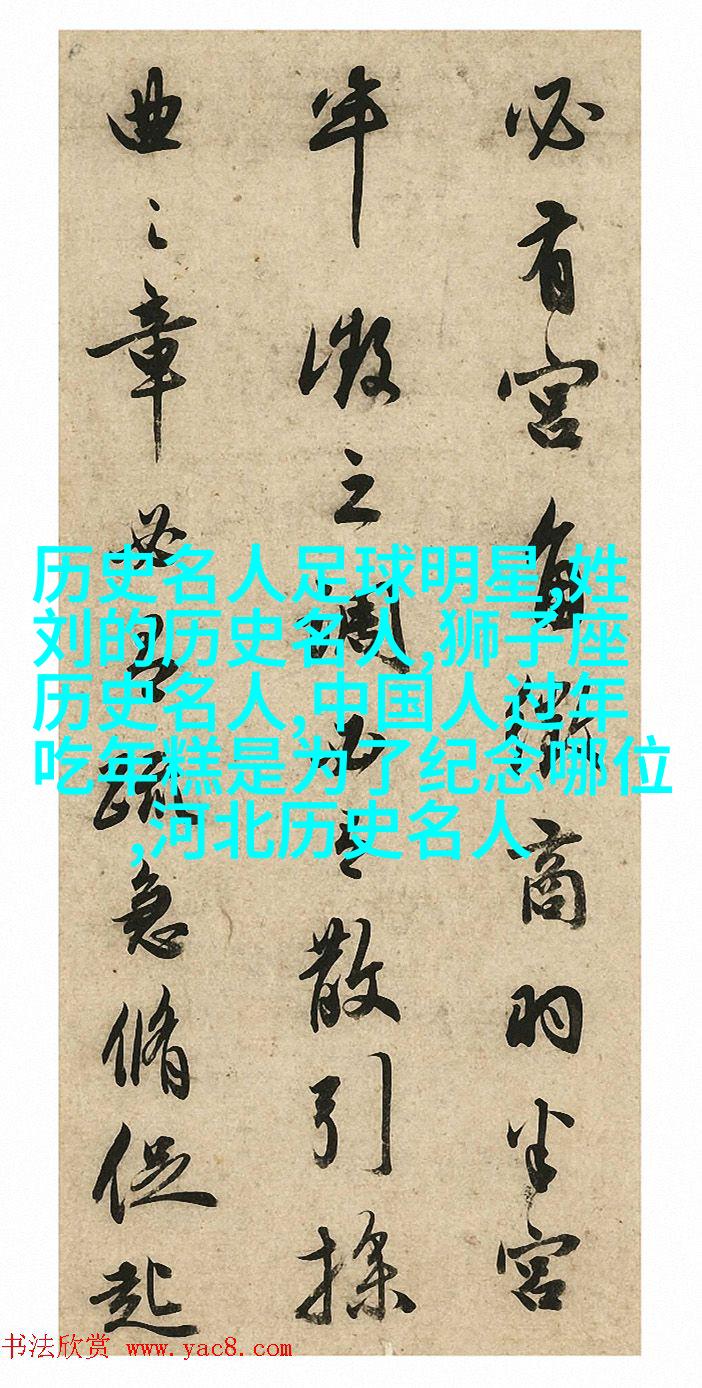 必有宫角徵商羽半宫
半徵之調必有散引操
曲之章必有疏急脩促起
历史名人足球明星,姓
刘的历史名人,狮子座
历史名人,中国人过年
吃年糕是为了纪念哪位
,河北历史名人
书法欣赏 www.yac8.com